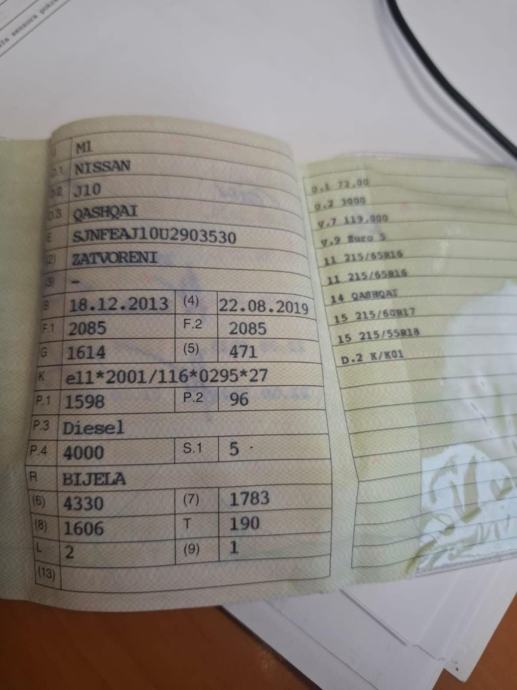 M1
D.1 NISSAN
D.2 J10
D.3 QASHQAI
E SJNFEAJ10U2903530
(2) ZATVORENI
(3) -
B 18.12.2013 (4) 22.08.2019
F.1 2085 F.2 2085
G 1614 (5) 471
K e11*2001/116*0295*27
P.1 1598 P.2 96
P.3 Diesel
P.4 4000 S.1 5
R BIJELA
(6) 4330 (7) 1783
(8) 1606 T 190
L 2 (9) 1
(13)
U.1 72,00
U.2 3000
V.7 119,000
V.9 Euro 5
11 215/65R16
11 215/65R16
14 QASHQAI
15 215/60R17
15 215/55R18
D.2 K/K01